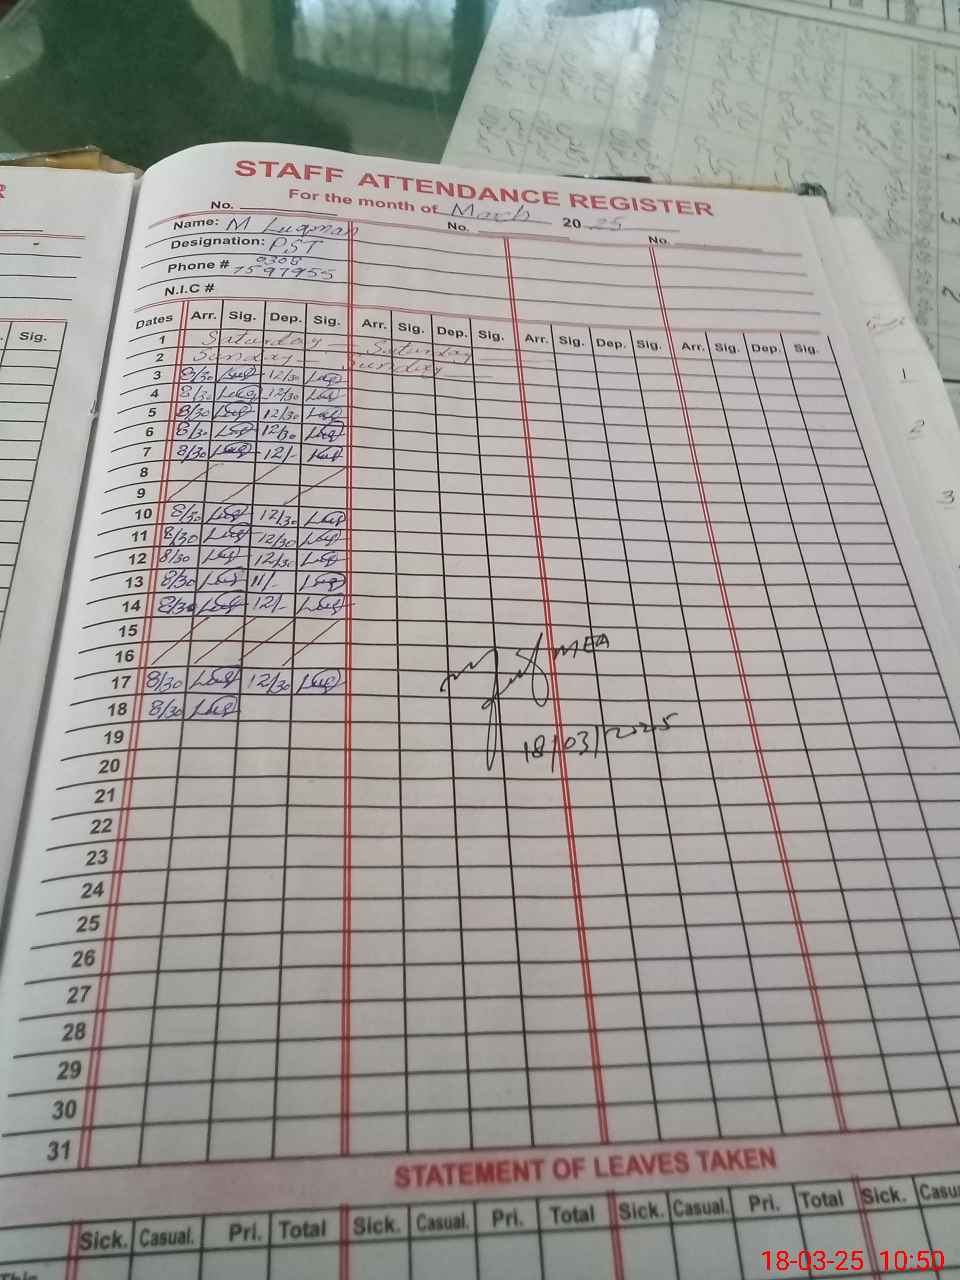 STAFF ATTENDANCE REGISTER
For the month of March 2025
No. No. No.
Name: M Luqman
Designation: PST
Phone # 0308
7597955
N.I.C #
Dates Arr. Sig. Dep. Sig. Arr. Sig. Dep. Sig. Arr. Sig. Dep. Sig. Arr. Sig. Dep. Sig.
Sig.
1 Saturday Saturday
2 Sunday Sunday
3 8/30 Luq 12/30 Luq
4 8/30 Luq 12/30 Luq
5 8/30 Luq 12/30 Luq
6 8/30 Luq 12/30 Luq
7 8/30 Luq 12/- Luq
8
9
10 8/30 Luq 12/30 Luq
11 8/30 Luq 12/30 Luq
12 8/30 Luq 12/30 Luq
13 8/30 Luq 11/- Luq
14 8/30 Luq 12/- Luq
15
16 MEA
17 8/30 Luq 12/30 Luq
18 8/30 Luq
18/03/2025
19
20
21
22
23
24
25
26
27
28
29
30
31
STATEMENT OF LEAVES TAKEN
Sick. Casual. Pri. Total Sick. Casual. Pri. Total Sick. Casual. Pri. Total Sick. Casu
This
18-03-25 10:50